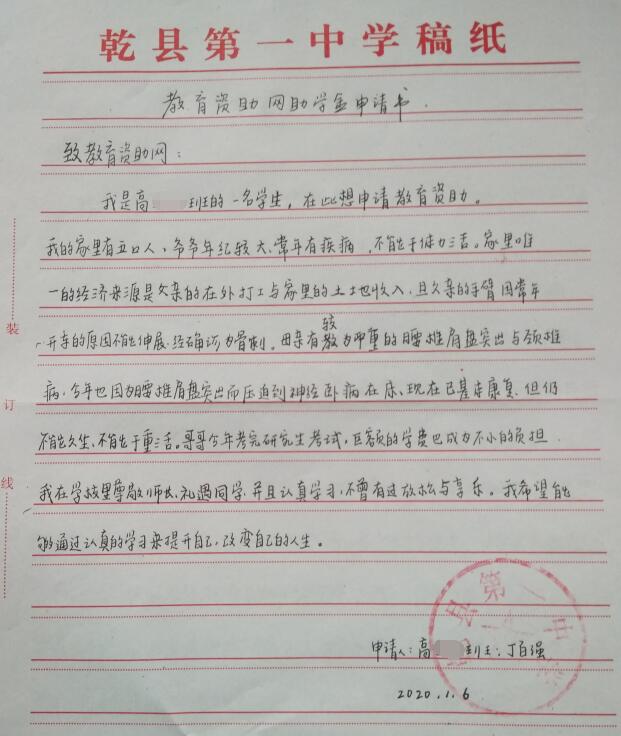 乾县第一中学稿纸
教育资助网助学金申请书.
致教育资助网:
我是高 班的一名学生,在此想申请教育资助。
我的家里有五口人、爷爷年纪较大、常年有疾病,不能干体力活。家里唯
一的经济来源是父亲的在外打工与家里的土地收入,且父亲的手臂因常年
开车的原因不能伸展、经确诊为骨刺。母亲有较为严重的腰椎肩盘突出与颈椎
病,今年也因为腰椎肩盘突出而压迫到神经卧病在床、现在已基本康复,但仍
不能久坐、不能干重活。哥哥今年考完研究生考试,巨额的学费也成为不小的负担.
我在学校里尊敬师长、礼遇同学,并且认真学习,不曾有过放松与享乐。我希望能
够通过认真的学习来提升自己,改变自己的人生。
申请人:高 班 丁百强
2020.1.6
装
订
线
县第一中